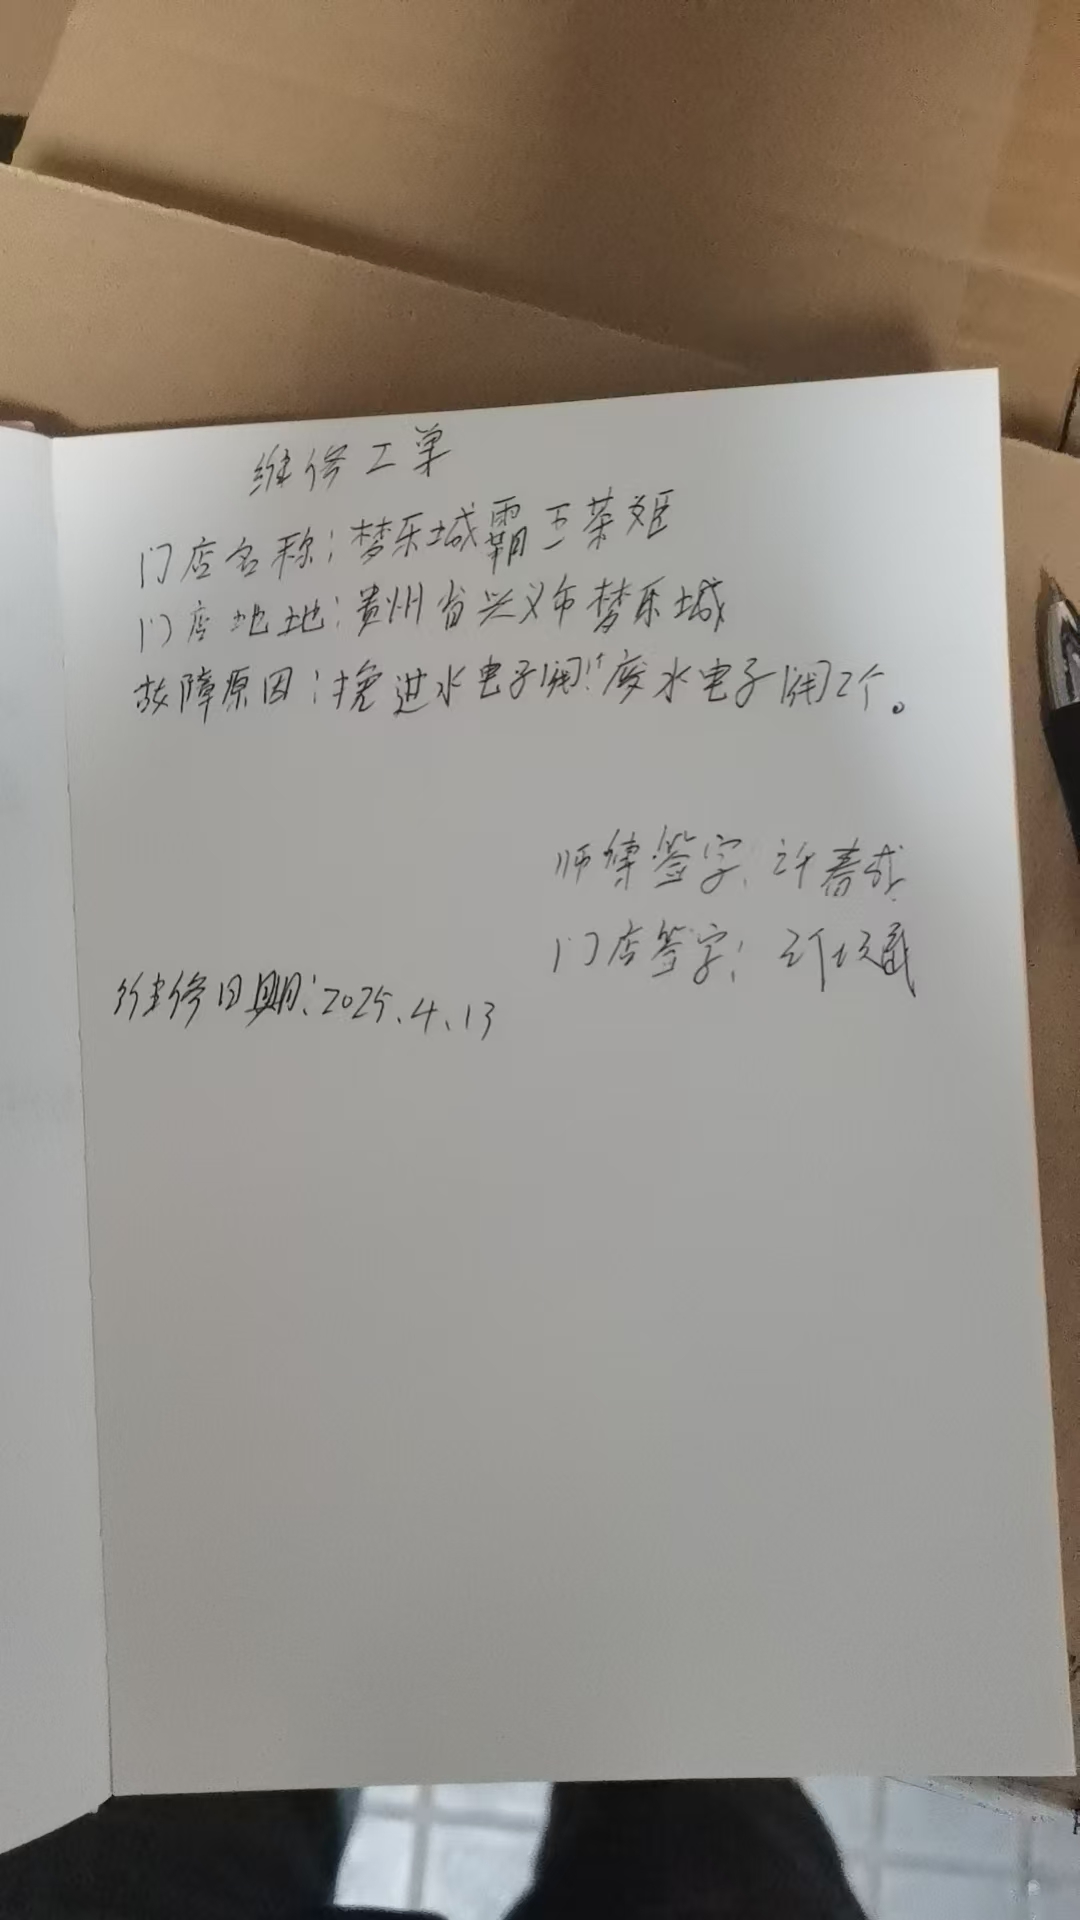 维修工单
门店名称：梦乐城霸王茶姬
门店地址：贵州省兴义市梦乐城
故障原因：换进水电子阀1个废水电子阀2个。
师傅签字：许春
门店签字：
维修日期：2025.4.13